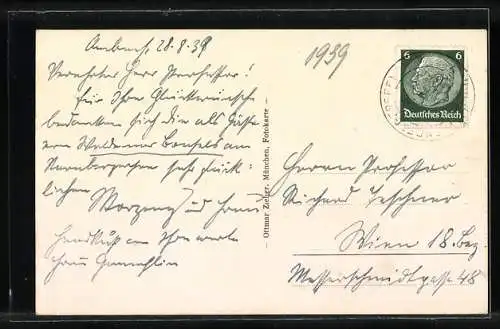 Ambach, 28.8.39
1939
Verehrter Herr Professor!
Für Ihre Glückwünsche
bedanken sich die als Gäste
von Waldemar Bonsels am
Starnbergersee sehr glück-
lichen
und Frau
Handkuß an Ihre werte
Frau Gemahlin
Ottmar Zieher, München, Fotokarte
6 6
Deutsches Reich
Herrn Professor
Richard Teschner
Wien 18. Bez.
Messerschmidtgasse 48